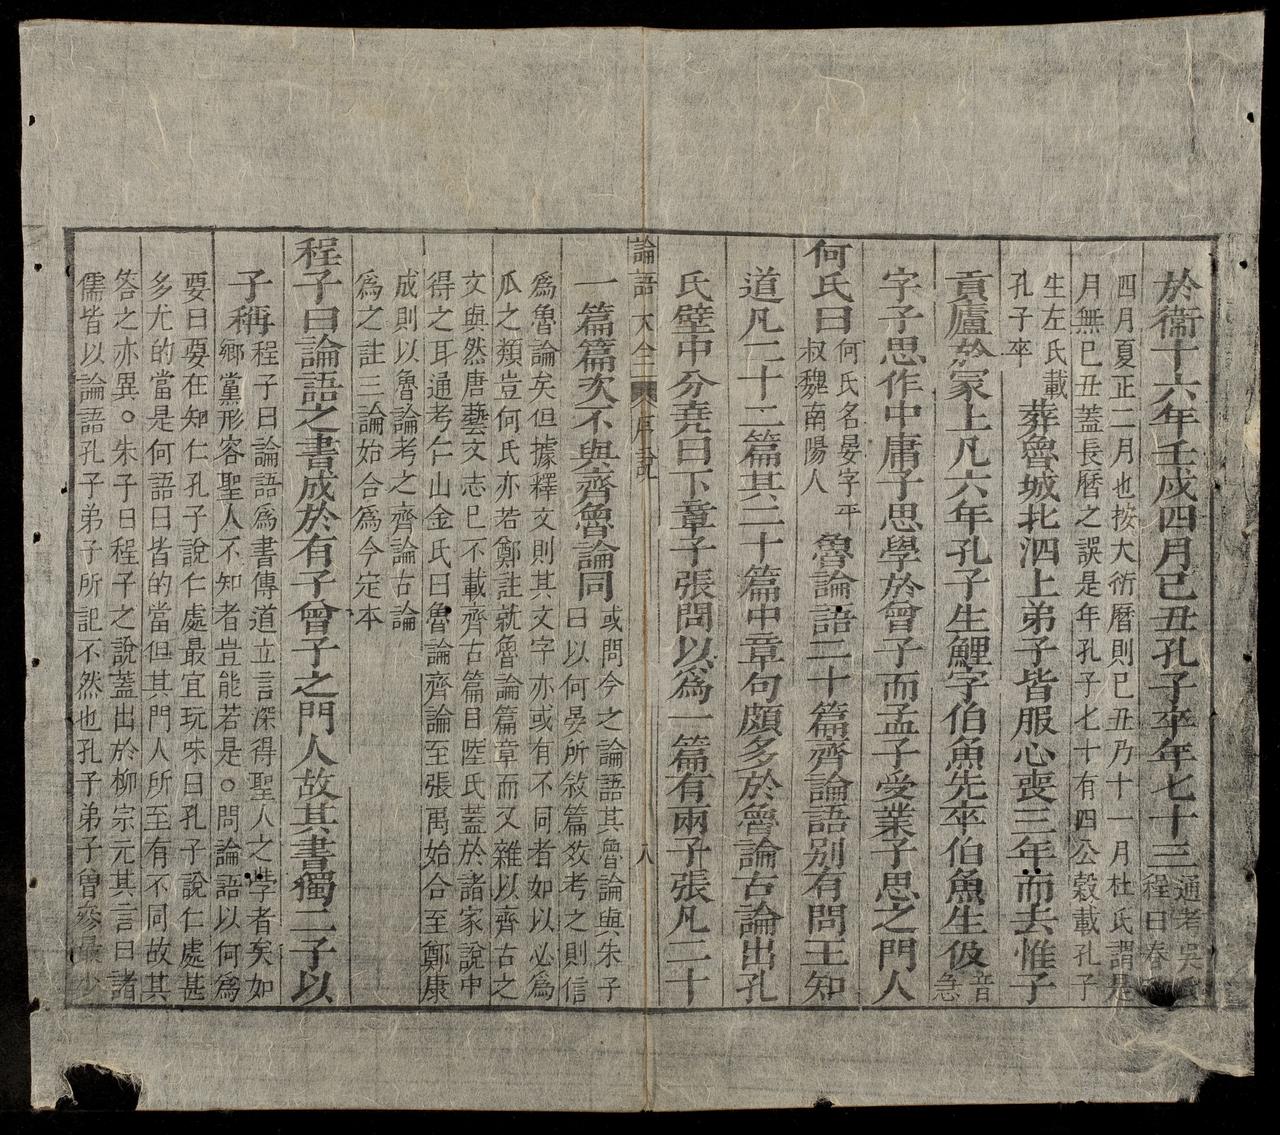 於衞十六年壬戌四月己丑孔子卒年七十三
通考吳
程曰春
四月夏正二月也按大衍曆則己丑乃十一月杜氏謂是
月無己丑蓋長曆之誤是年孔子七十有四公穀載孔子
生左氏載
孔子卒
葬魯城北泗上弟子皆服心喪三年而去惟子
貢廬於冢上凡六年孔子生鯉字伯魚先卒伯魚生伋
音
急
字子思作中庸子思學於曾子而孟子受業子思之門人
何氏曰
何氏名晏字平
叔魏南陽人
魯論語二十篇齊論語别有問王知
道凡二十二篇其二十篇中章句頗多於魯論古論出孔
氏壁中分堯曰下章子張問以爲一篇有兩子張凡二十
論語大全 序說 八
一篇篇次不與齊魯論同
或問今之論語其魯論與朱子
曰以何晏所敘篇數考之則信
爲魯論矣但據釋文則其文字亦或有不同者如以必爲
瓜之類豈何氏亦若鄭註就魯論篇章而又雜以齊古之
文與然唐藝文志已不載齊古篇目陸氏蓋於諸家說中
得之耳通考仁山金氏曰魯論齊論至張禹始合至鄭康
成則以魯論考之齊論古論
爲之註三論始合爲今定本
程子曰論語之書成於有子曾子之門人故其書獨二子以
子稱
程子曰論語爲書傳道立言深得聖人之學者矣如
鄉黨形容聖人不知者豈能若是○問論語以何爲
要曰要在知仁孔子說仁處最宜玩味曰孔子說仁處甚
多尤的當是何語曰皆的當但其門人所至有不同故其
答之亦異○朱子曰程子之說蓋出於柳宗元其言曰諸
儒皆以論語孔子弟子所記不然也孔子弟子曾參最少